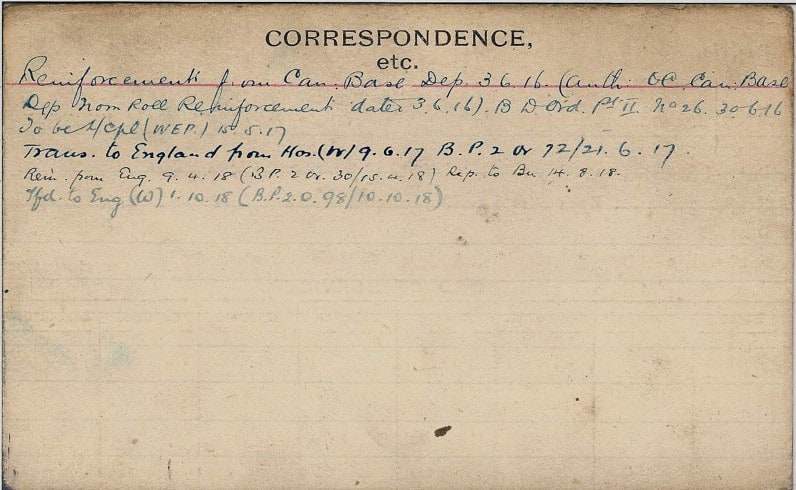 CORRESPONDENCE,
etc.
Reinforcement from Can: Base Dep. 3.6.16. (Auth: OC. Can: Base
Dep Nom Roll Reinforcement dated 3.6.16). B D Ord. Pt II. No 26. 30-6-16
To be A/Cpl (WEP.) 15.5.17
Trans. to England from Hos. (W) 9.6.17 B.P.2 Or 72/21.6.17.
Rein. from Eng. 9.4.18 (B.P. 2 Or. 30/15.4.18) Rep. to Bn 14.8.18.
Tfd. to Eng (W) 1.10.18 (B.P.2.O. 98/10.10.18)